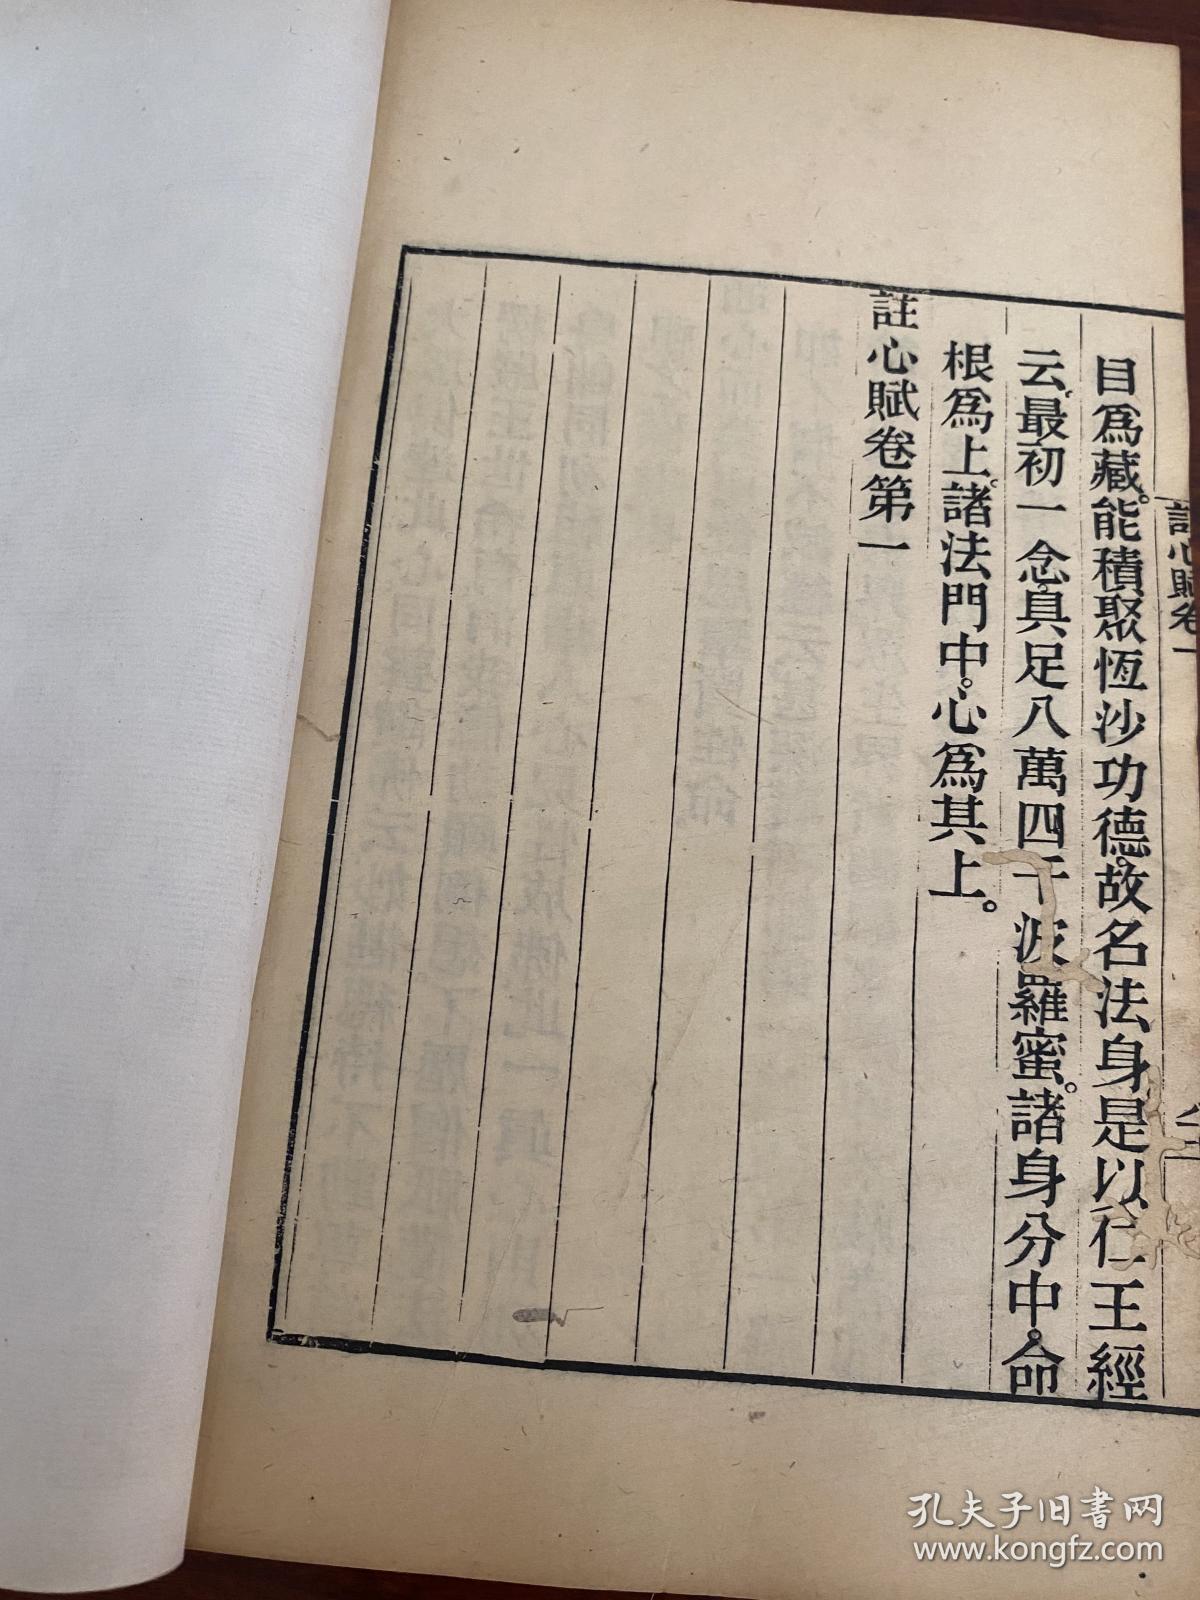 註心賦卷一
目爲藏。能積聚恆沙功德。故名法身。是以仁王經
云。最初一念。具足八萬四千波羅蜜。諸身分中。命
根爲上。諸法門中。心爲其上。
註心賦卷第一
孔夫子旧书网
www.kongfz.com